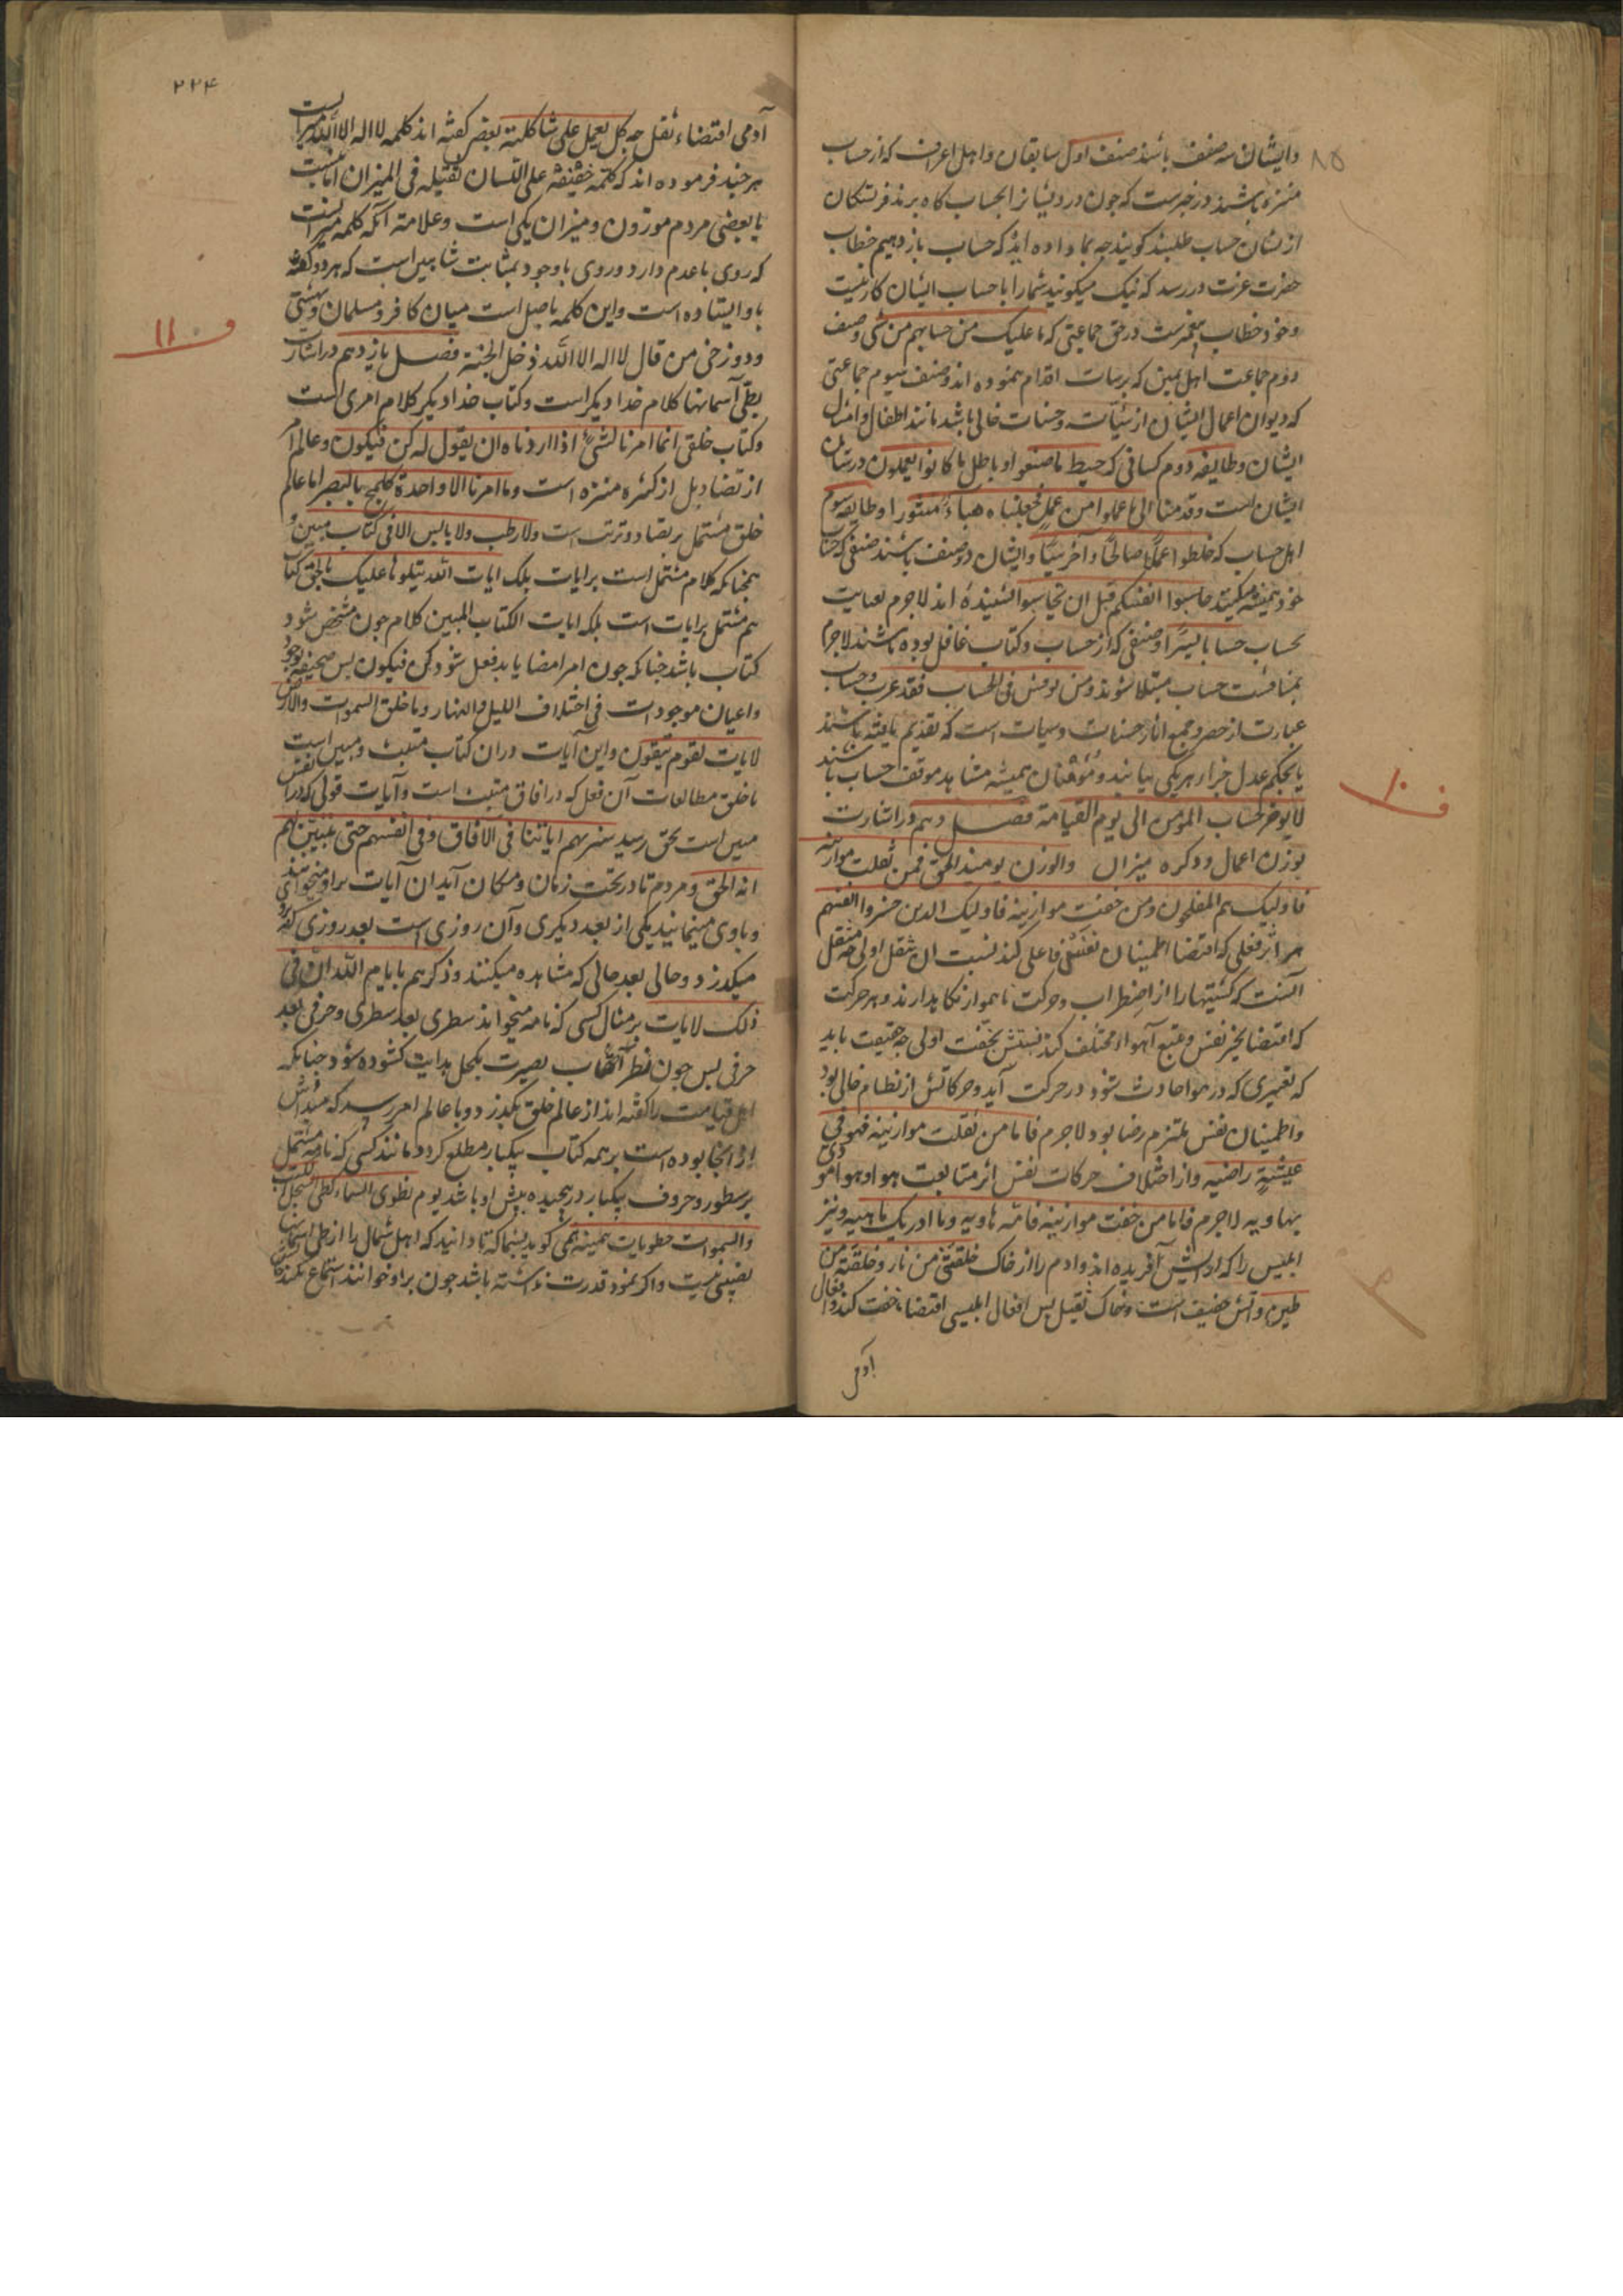 وایشان سه صنف باشند صنف اول سابقان و اهل اعراف که از حساب
منزه باشند در خبرست که چون درویشانرا بحساب کاه برند فرشتکان
ازیشان حساب طلبند کویند چه بما داده اید که حساب باز دهیم خطاب
حضرت عزت در رسد که نیک میکویند شما را با حساب ایشان کار نیست
و خود خطاب پیغمبرست در حق جماعتی که ما علیک من حسابهم من شی و صنف
دوم جماعت اهل یمین که بر سیات اقدام ننموده اند و صنف سیوم جماعتی
که دیوان اعمال ایشان از سیئات و حسنات خالی باشد مانند اطفال و امثال
ایشان و طایفه دوم کسانی که حبط ما صنعوا و باطل ما کانوا یعملون در شان
ایشان است وقدمنا الی ما عملوا من عمل فجعلناه هباء منثورا و طایفه سیوم
اهل حساب که خلطوا عملا صالحا و آخر سیئا و ایشان دو صنف باشند صنفی که حساب
خود همیشه میکنند حاسبوا انفسکم قبل ان تحاسبوا شنیده اند لاجرم بعاقبت
بحساب حسابا یسیرا و صنفی که از حساب و کتاب غافل بوده باشند لاجرم
بمناقشت حساب مبتلا شوند ومن نوقش فی الحساب فقد عذب و حساب
عبارت از حصر و جمع آثار حسنات و سیات است که تقدیم یافته باشند
تا بحکم عدل جزاء هر یکی بیابند و موقنان همیشه مشاهد موقف حساب باشند
لا یوخر حساب المؤمن الی یوم القیامة فصل دهم در اشارت
بوزن اعمال و ذکر میزان والوزن یومئذ الحق فمن ثقلت موازینه
فاولیک هم المفلحون ومن خفت موازینه فاولیک الذین خسروا انفسهم
هر اثر فعلی که اقتضاء اطمینان نفس فاعل کند نسبت آن بثقل اولی چه مثقل
آنست که کشتیها را از اضطراب و حرکت ناهموار نکاه دارند و هر حرکت
که اقتضاء تحیر نفس و تتبع اهواء مختلف کند نسبتش بخفت اولی چه خفیف باید
که تغییری که در هوا حادث شود در حرکت آید و حرکاتش از نظام خالی بود
و اطمینان نفس ملتزم رضا بود لاجرم فاما من ثقلت موازینه فهو فی
عیشة راضیه و از اختلاف حرکات نفس اثر متابعت هوا و هوا مودی
بهاویه لاجرم فاما من خفت موازینه فامه هاویه وما ادریک ماهیه و نیز
ابلیس را که از آتش آفریده اند و ادم را از خاک خلقتنی من نار و خلقته من
طین و آتش خفیف است و خاک ثقیل پس افعال ابلیسی اقتضاء خفت کند و افعال
آدمی
۸۵
ف ۱۰
۲۲۴
آدمی اقتضاء ثقل چه کل یعمل علی شاکلته بعضی کفته اند کلمه لا اله الا الله میزانست
هر چند فرموده اند که کلمة خفیفة علی اللسان ثقیلة فی المیزان اما نسبت
با بعضی مردم موزون و میزان یکی است و علامة آنکه کلمه میزانست
که روی با عدم دارد و روی با وجود بمثابت شاهین است که هر دو کفه
باو ایستاده است و این کلمه فاصل است میان کافر و مسلمان و بهشتی
و دوزخی من قال لا اله الا الله دخل الجنة فصل یازدهم در اشارت
بطی آسمانها کلام خدا دیکر است و کتاب خدا دیکر کلام امری است
و کتاب خلقی انما امرنا لشیء اذا اردناه ان یقول له کن فیکون و عالم امر
از تضاد بل از کثره منزه است وما امرنا الا واحدة کلمح بالبصر اما عالم
خلق مشتمل بر تضاد و ترتب است ولا رطب ولا یابس الا فی کتاب مبین و
همچنانکه کلام مشتمل است بر ایات تلک ایات الله نتلوها علیک بالحق کتاب
هم مشتمل بر ایات است تلک ایات الکتاب المبین کلام چون مشخص شود
کتاب باشد چنانکه چون امر امضا یابد فعل شود کن فیکون پس صحیفه وجود
و اعیان موجودات فی اختلاف اللیل والنهار وما خلق السموات والارض
لایات لقوم یتقون و این آیات در ان کتاب مثبت و مبین است
تا خلق مطالعات آن فعل که در افاق مثبت است و آیات قولی که در انفس
مبین است بحق رسید سنریهم ایاتنا فی الافاق وفی انفسهم حتی یتبین لهم
انه الحق و مردم تا در تحت زمان و مکان آید ان آیات بر او میخوانند
و باو می نمایند یکی از بعد دیکری و آن روزی است بعد روزی که
میکذرد و حالی بعد حالی که مشاهده میکنند وذکرهم بایام الله ان فی
ذلک لایات بر مثال کسی که نامه میخواند سطری بعد سطری و حرفی بعد
حرفی پس چون نظر بصیرت بکحل هدایت کشوده شود چنانکه
اهل قیامت را کفته اند از عالم خلق بکذرد و با عالم امر رسد که مبدأش
از انجا بوده است بر همه کتاب یکبار مطلع کردد مانند کسی که نامه مشتمل
بر سطور و حروف یکبار در پیچیده پیش او باشد یوم نطوی السماء کطی السجل للکتب
والسموات مطویات بیمینه نمی کوید بشماله تا دانید که اهل شمال را از طی اسمانها
نصیبی نیست و اکر بخود قدرت نداشته باشد چون بر او خوانند استماع نکند
ف ۱۱